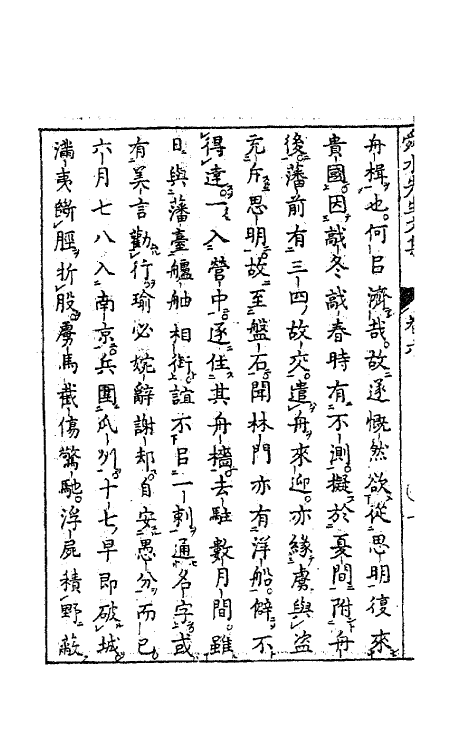 舜水先生文集 卷六
舟楫也。何㠯濟哉。故遂慨然欲從思明復來
貴國。因敲冬敲春時有不測。擬於夏間附舟
後。藩前有三四故交。遣舟來迎。亦緣虜與盜
充斥思明。故至盤石。聞林門亦有洋船。僻不
得達。一入營中。逐住其舟檣去駐數月間。雖
日與藩臺艫舳相銜。誼不㠯一刺通名字。或
有美言勸行。瑜必婉辭謝却。自安愚分而已
六月七八入南京。兵圍瓜州。十七早即破城。
滿夷斷脛折股。虜馬截傷驚馳。浮屍積野蔽